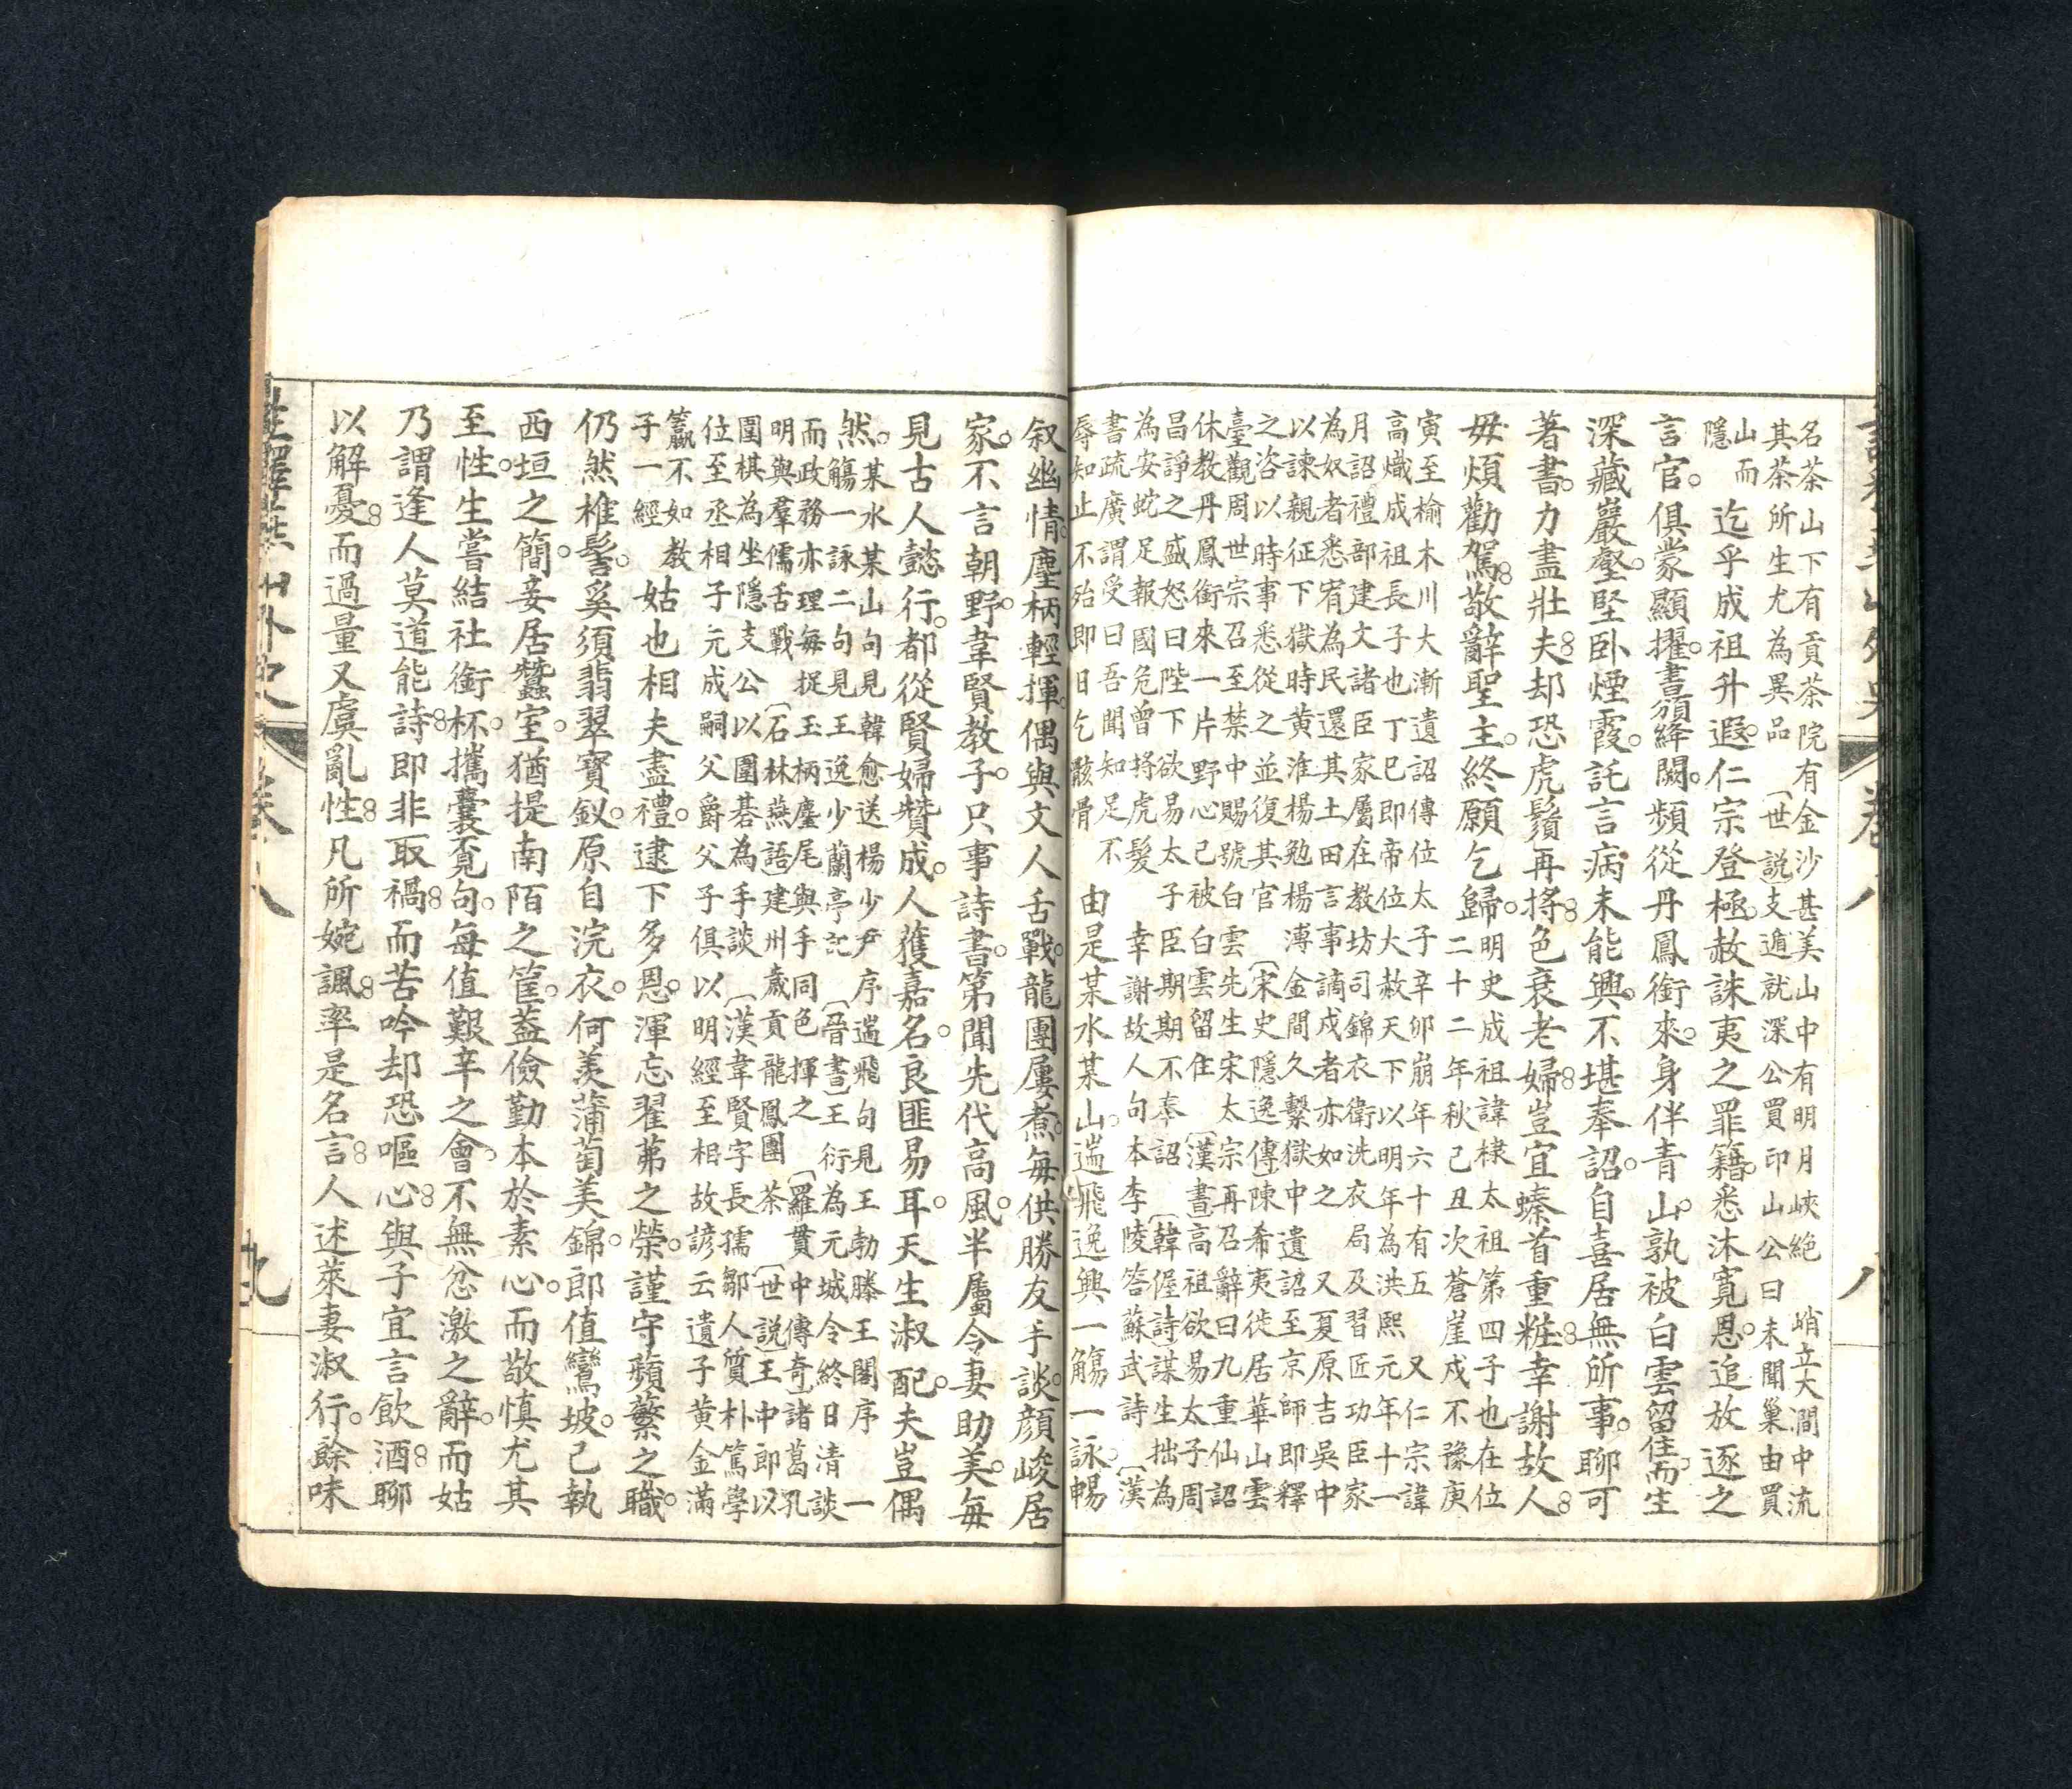 註釋燕山外史 卷八 八
名茶山下有貢茶院有金沙甚美山中有明月峽絕 峭立大澗中流
其茶所生尤為異品 〔世說〕支遁就深公買印山公曰未聞巢由買
山而
隱
迄乎成祖升遐。仁宗登極。赦誅夷之罪籍。悉沐寬恩。追放逐之
言官。俱蒙顯擢。書頒絳闕。頻從丹鳳銜來。身伴青山。孰被白雲留住。而生
深藏巖壑。堅卧煙霞。託言病未能興。不堪奉詔。自喜居無所事。聊可
著書。力盡壯夫。却恐虎鬚再捋。色衰老婦。豈宜螓首重粧。幸謝故人。
毋煩勸駕。敬辭聖主。終願乞歸。
明史成祖諱棣太祖第四子也在位
二十二年秋己丑次蒼崖戍不豫庚
寅至榆木川大漸遺詔傳位太子辛卯崩年六十有五 又仁宗諱
高熾成祖長子也丁巳即帝位大赦天下以明年為洪熙元年十一
月詔禮部建文諸臣家屬在教坊司錦衣衛洗衣局及習匠功臣家
為奴者悉宥為民還其土田言事謫戍者亦如之 又夏原吉吳中
以諫親征下獄時黃淮楊勉楊溥金間久繫獄中遺詔至京師即釋
之咨以時事悉從之並復其官 〔宋史隱逸傳〕陳希夷徙居華山雲
臺觀周世宗召至禁中賜號白雲先生宋太宗再召辭曰九重仙詔
休教丹鳳銜來一片野心已被白雲留住 〔漢書〕高祖欲易太子周
昌諍之盛怒曰陛下欲易太子臣期期不奉詔 〔韓偓詩〕謀生拙為
為安蛇足報國危曾捋虎髮 幸謝故人句本李陵答蘇武詩 〔漢
書疏廣謂受曰吾聞知足不
辱知止不殆即日乞骸骨
由是某水某山。遄飛逸興。一觴一詠。暢
叙幽情。麈柄輕揮。偶與文人舌戰。龍團屢煮。每供勝友手談。顏峻居
家。不言朝野。韋賢教子。只事詩書。第聞先代高風。半屬今妻助美。每
見古人懿行。都從賢婦贊成。人獲嘉名。良匪易耳。天生淑配。夫豈偶
然。
某水某山句見韓愈送楊少尹序遄飛句見王勃滕王閣序 一
觴一詠二句見王逸少蘭亭記 〔晉書〕王衍為元城令終日清談
而政務亦理每捉玉柄麈尾與手同色揮之 〔羅貫中傳奇〕諸葛孔
明與羣儒舌戰 〔石林燕語〕建州歲貢龍鳳團茶 〔世說〕王中郎以
圍棋為坐隱支公以圍碁為手談 〔漢韋賢字長孺鄒人質朴篤學
位至丞相子元成嗣父爵父子俱以明經至相故諺云遺子黃金滿
籯不如教
子一經
姑也相夫盡禮。逮下多恩。渾忘翟茀之榮。謹守蘋蘩之職。
仍然椎髻。奚須翡翠寶釵。原自浣衣。何羡蒲萄美錦。郎值鸞坡。已執
西垣之簡。妾居蠶室。猶提南陌之筐。蓋儉勤本於素心。而敬慎尤其
至性。生嘗結社銜杯。攜囊覓句。每值艱辛之會。不無忿激之辭。而姑
乃謂逢人莫道能詩。即非取禍。而苦吟却恐嘔心。與子宜言飲酒。聊
以解憂。而過量又虞亂性。凡所婉諷。率是名言。人述萊妻淑行。餘味
註釋燕山外史 卷八 九